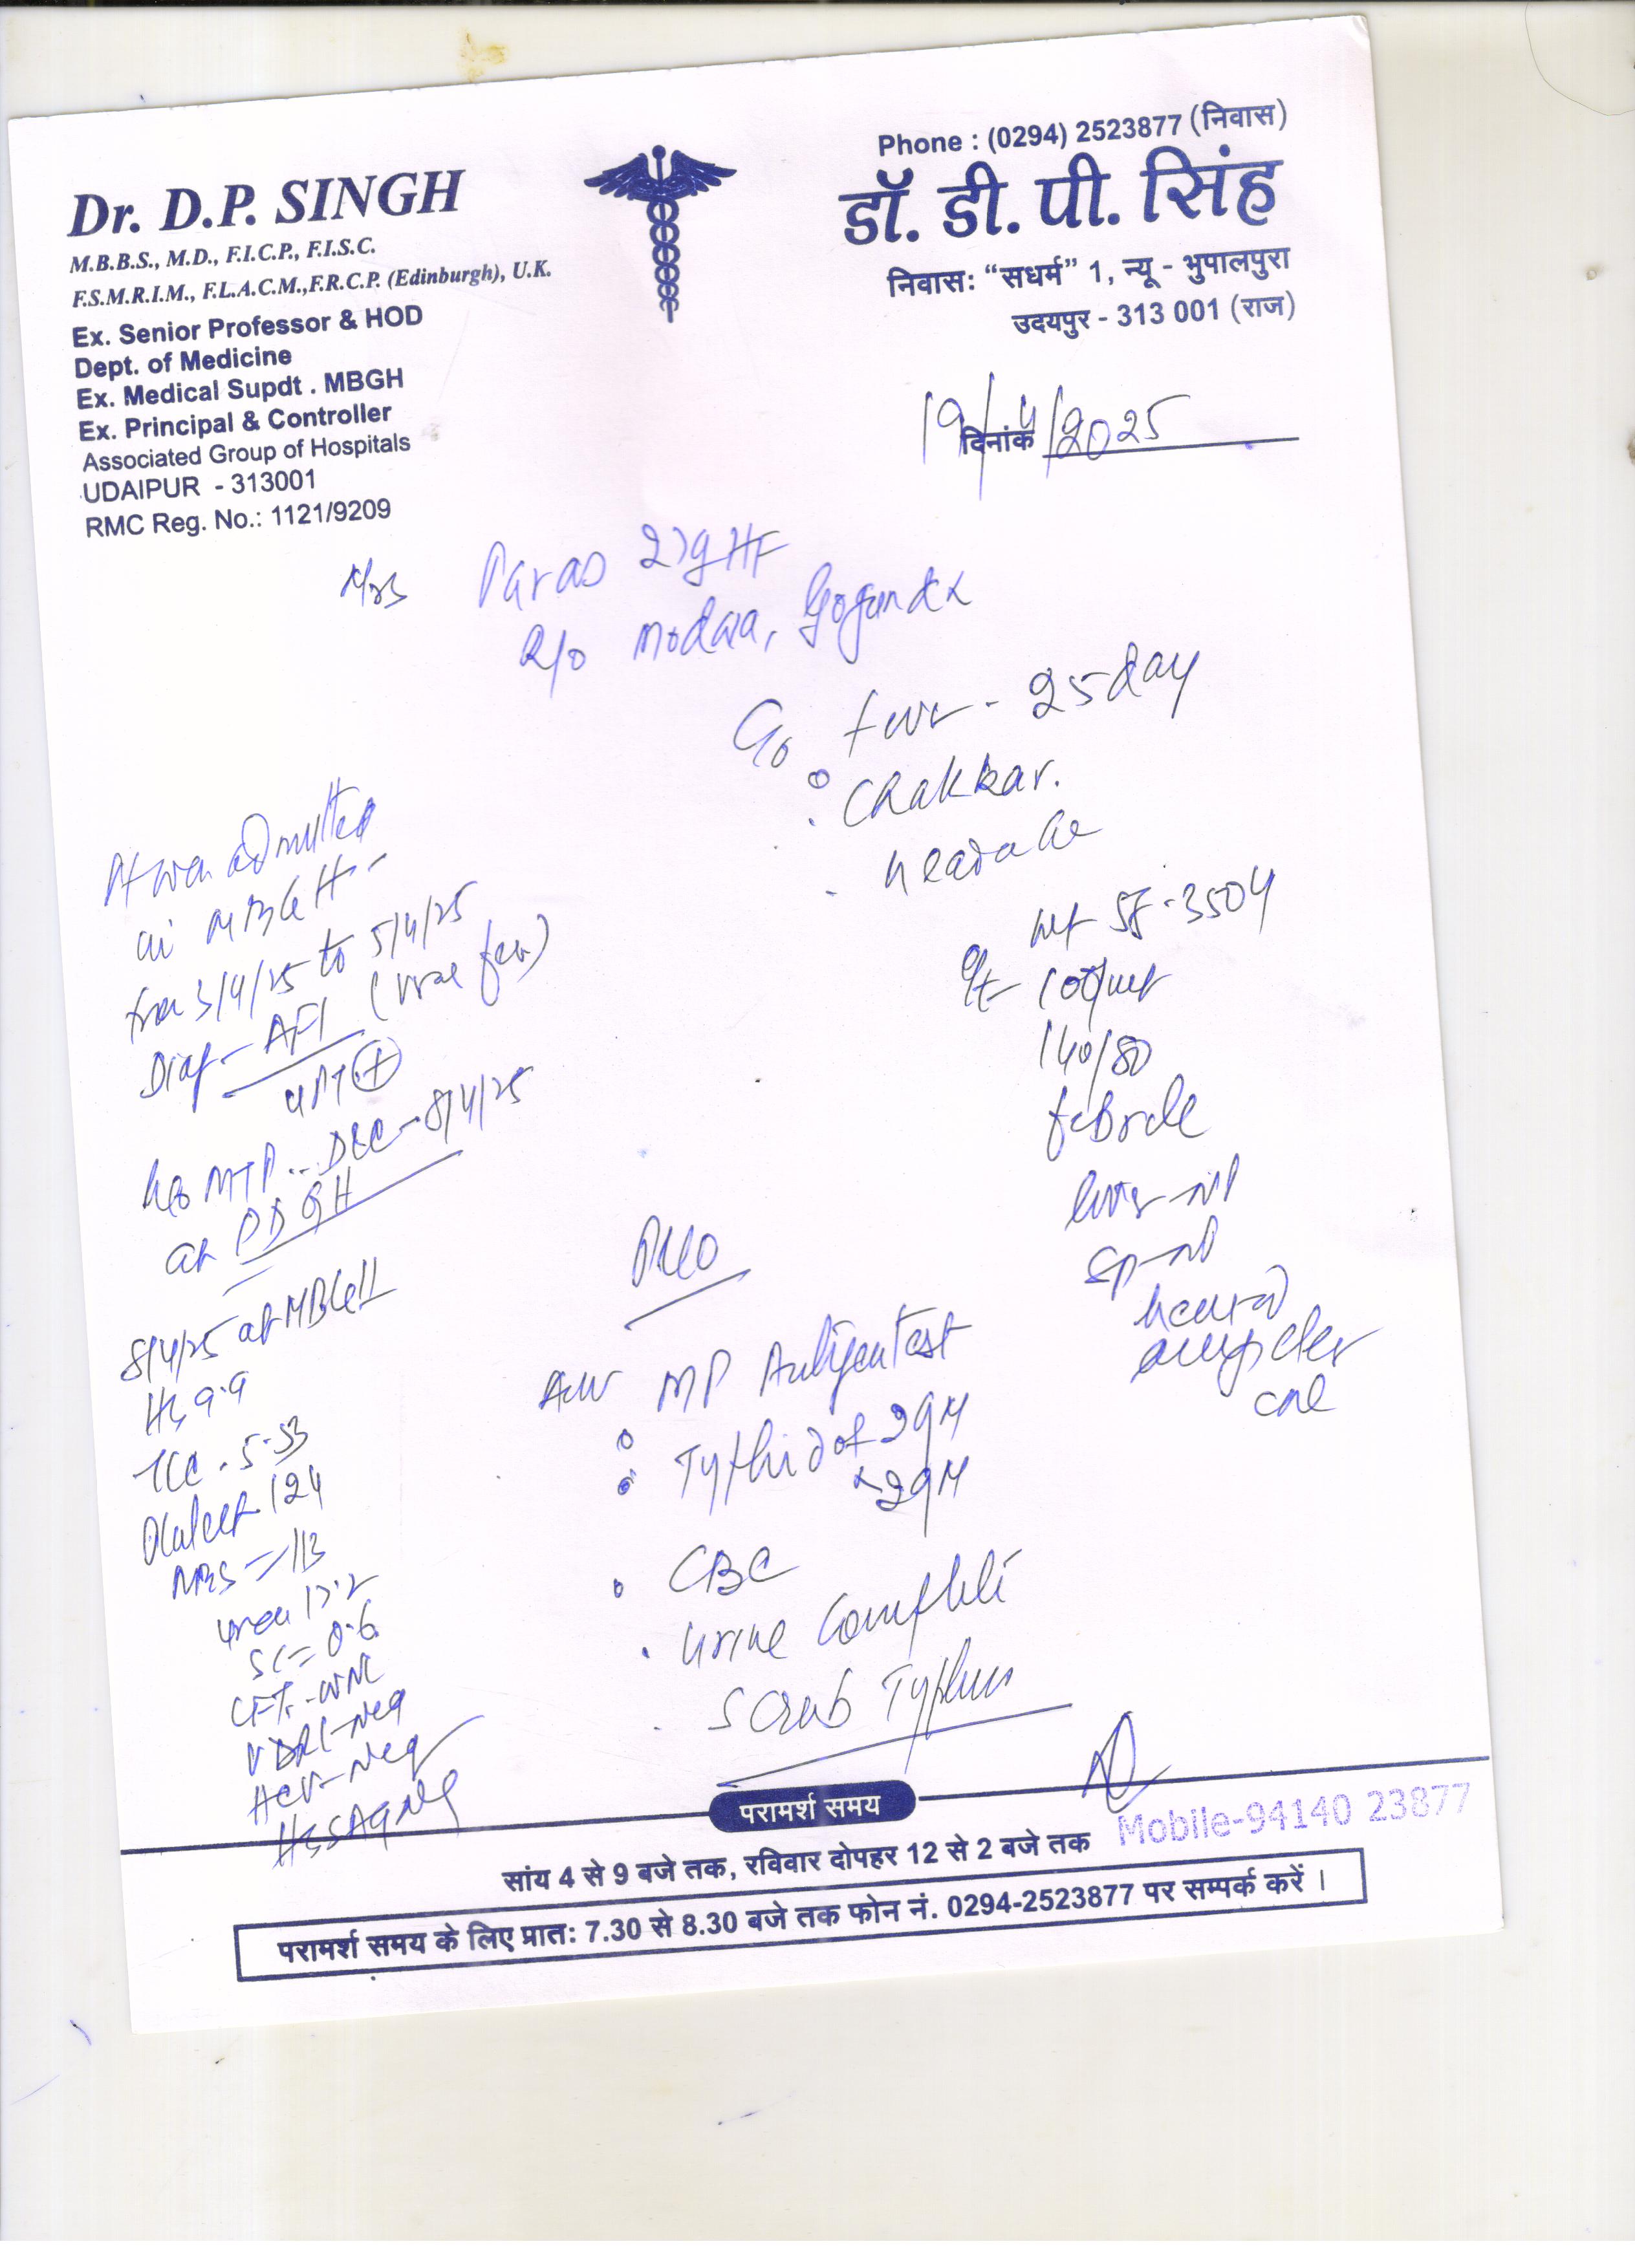 Phone : (0294) 2523877 (निवास)
Dr. D.P. SINGH
M.B.B.S., M.D., F.I.C.P., F.I.S.C.
F.S.M.R.I.M., F.L.A.C.M.,F.R.C.P. (Edinburgh), U.K.
Ex. Senior Professor & HOD
Dept. of Medicine
Ex. Medical Supdt . MBGH
Ex. Principal & Controller
Associated Group of Hospitals
UDAIPUR - 313001
RMC Reg. No.: 1121/9209
डॉ. डी. पी. सिंह
निवास: “सधर्म” 1, न्यू - भुपालपुरा
उदयपुर - 313 001 (राज)
दिनांक 19/4/2025
Mrs Paras 27yHF
R/o Modwa, Gogunda
C/o fever - 25 day
Chakkar.
headache
wt 58.350
O/E 100/mt
140/80
febrile
liver - NP
Sp - NP
Pt was admitted
in MBGH
from 3/4/25 to 5/4/25
Diag - AFI (viral fever)
UPT +
h/o MTP .. D&C - 8/4/25
at PDGH
8/4/25 at MBGH
Hb 9.9
TLC - 5.53
Platelet 124
RBS = 113
urea 17.2
SC = 0.6
LFT - WNL
VDRL - Neg
HCV - Neg
HBSAg Neg
PUO
Adv MP Antigen Test
Typhidot IgM
IgM
CBC
Urine Complete
Scrub Typhus
परामर्श समय
Mobile-94140 23877
सांय 4 से 9 बजे तक, रविवार दोपहर 12 से 2 बजे तक
परामर्श समय के लिए प्रात: 7.30 से 8.30 बजे तक फोन नं. 0294-2523877 पर सम्पर्क करें ।